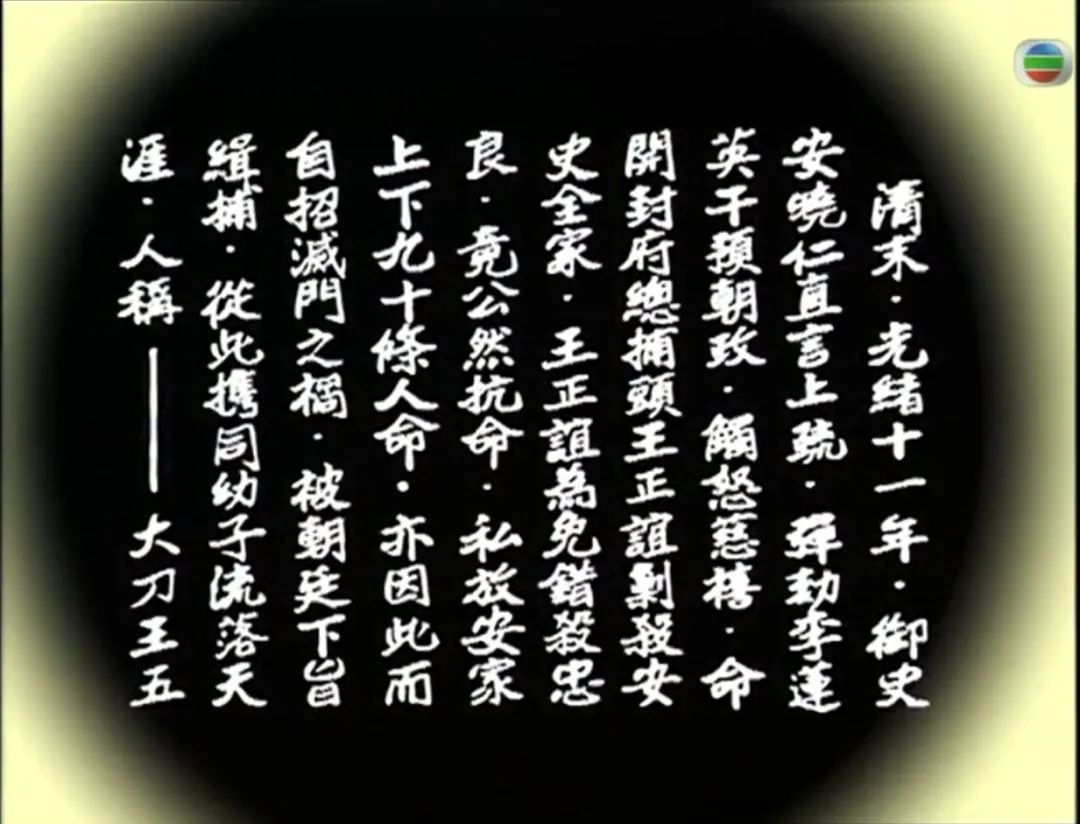 清末·光緒十一年·御史
安曉仁直言上疏·彈劾李連
英干預朝政·觸怒慈禧·命
開封府總捕頭王正誼剿殺安
史全家·王正誼為免錯殺忠
良·竟公然抗命·私放安家
上下九十條人命·亦因此而
自招滅門之禍·被朝廷下旨
緝捕·從此攜同幼子流落天
涯·人稱——大刀王五